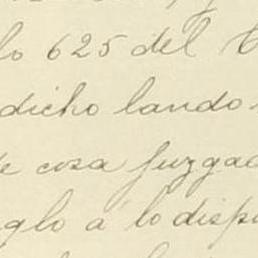 lo 625 del C
dicho laudo
e cosa juzgad
glo a lo dispu